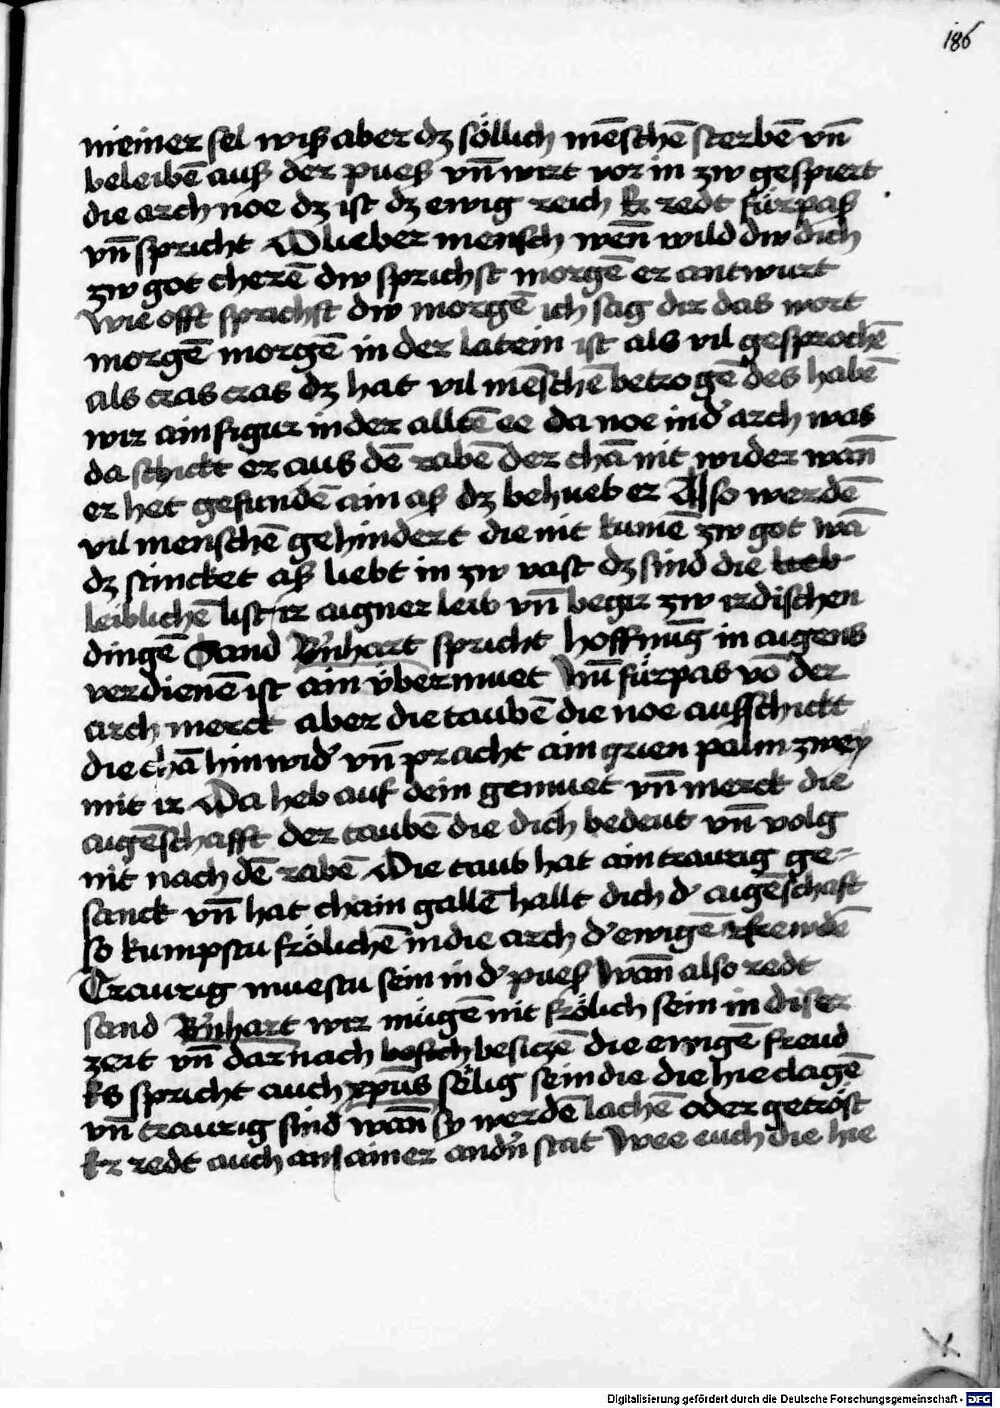 186
meiner sel wiß aber dz söllich mēschē sterbē vn̄
beleibē auß der pueß vn̄ wirt vor in zw gespiert
die arch noe dz ist dz ewig reich Er redt fürpaß
vn̄ spricht O lieber mensch wen̄ wild dw dich
zw got cherē dw sprichst morgē er antwurt
Wie offt sprichst dw morgē ich sag dir das wort
morgē morgē in der latein ist als vil gesprochē
als cras cras dz hat vil mēschē betrogē des habē
wir ain figur in der alltē ee da noe in d' arch was
da schickt er aus dē rabē der chā nit wider wan̄
er het gefundē ain aß dz behueb er Also werdē
vil menschē gehindert die nit kumē zw got wā
dz stincket aß liebt in zw vast dz sind die
leiblichē list ir aigner leib vn̄ begir zw irdischen
dingē Sand Bn̄hart spricht hoffnūg in aigens
verdienē ist ain übermuet Nū fürpas vō der
arch merck aber die taubē die noe aufschickt
die chā hinwid' vn̄ pracht ain grien palm zwey
mit ir Da heb auf dein gemuet vn̄ merck die
aigēschafft der taubē die dich bedeut vn̄ volg
nit nach dē rabē Die taub hat ain traurig ge-
sanck vn̄ hat chain gallē hallt dich d' aigēschaft
so kumpstu frölichē in die arch d' ewigē frewdē
Traurig muestu sein in d' pueß Wan̄ also redt
sand Bn̄hart wir mügē nit frölich sein in diser
zeit vn̄ darnach besiczē die ewigē freud
Es spricht auch xpūs sëlig sein die die hie clagē
vn̄ traurig sind wan̄ sy werdē lachē oder getröst
Er redt auch an ainer andn̄ stat Wee euch die hie
Digitalisierung gefördert durch die Deutsche Forschungsgemeinschaft - DFG